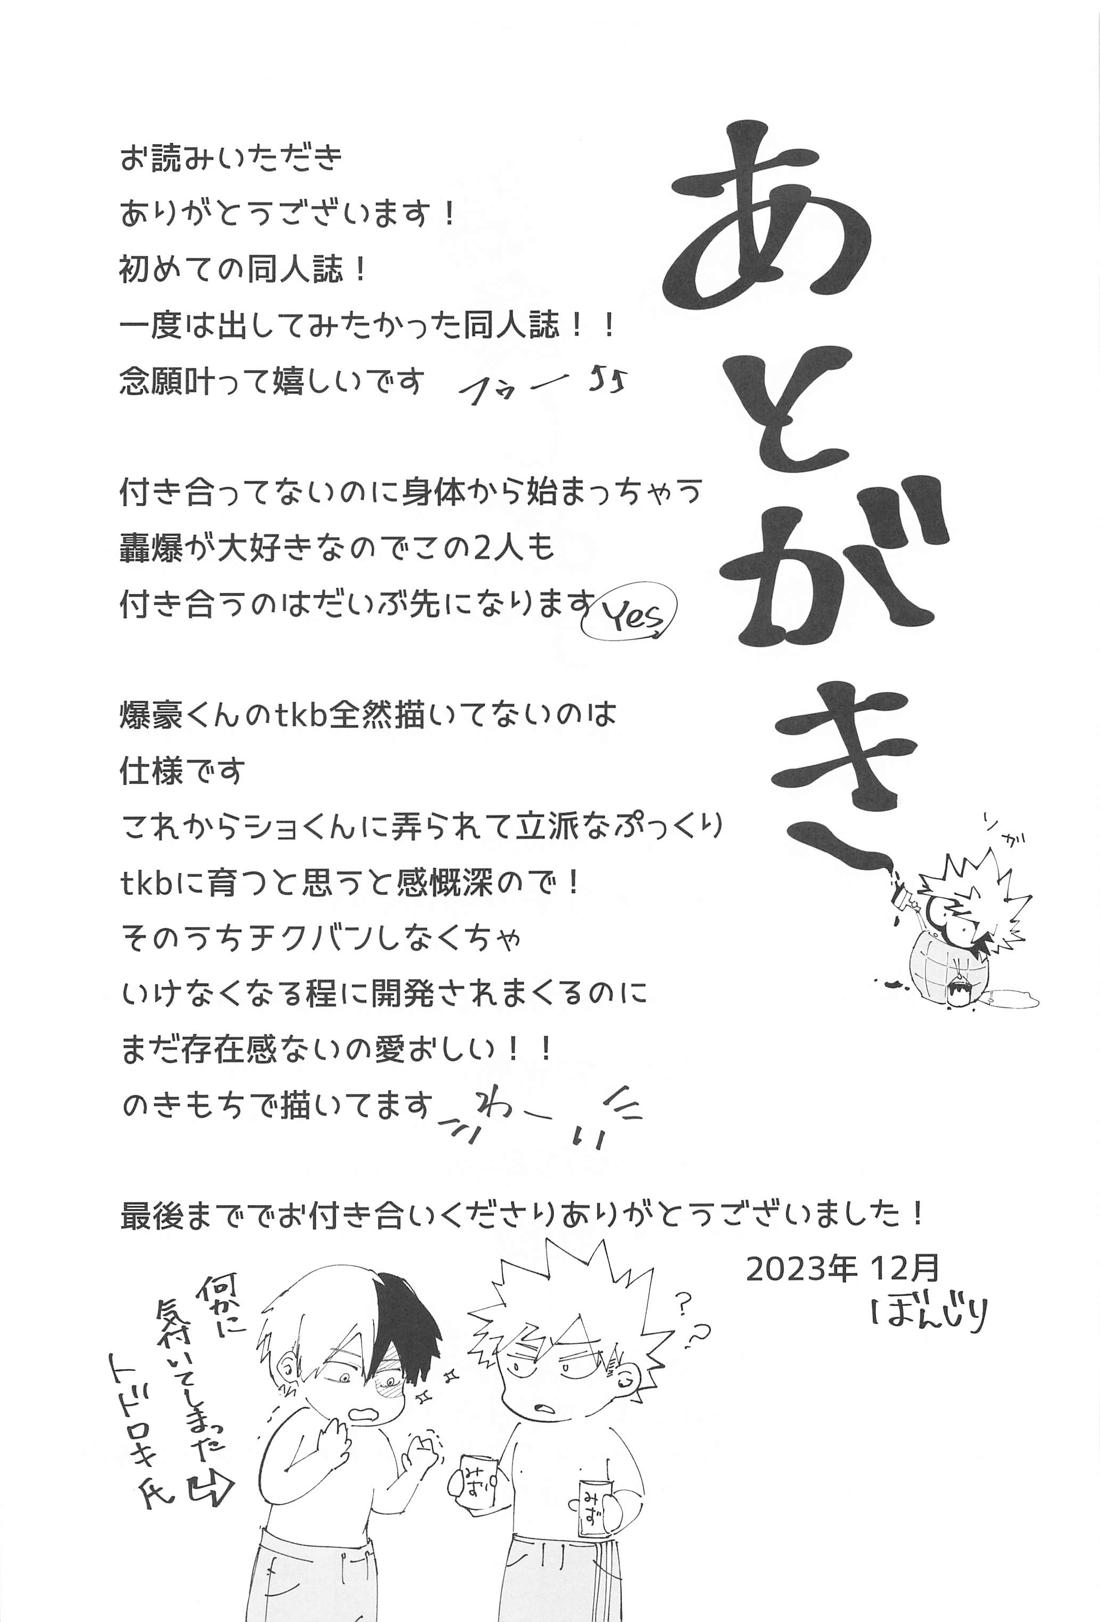 あとがき
お読みいただき
ありがとうございます！
初めての同人誌！
一度は出してみたかった同人誌！！
念願叶って嬉しいです
フゥー
付き合ってないのに身体から始まっちゃう
轟爆が大好きなのでこの2人も
付き合うのはだいぶ先になります
Yes
爆豪くんのtkb全然描いてないのは
仕様です
これからショくんに弄られて立派なぷっくり
tkbに育つと思うと感慨深ので！
そのうちチクバンしなくちゃ
いけなくなる程に開発されまくるのに
まだ存在感ないの愛おしい！！
のきもちで描いてます
わーい
最後まででお付き合いくださりありがとうございました！
2023年 12月
ぼんじり
何かに
気付いてしまった
トドロキ氏
みず
みず
??